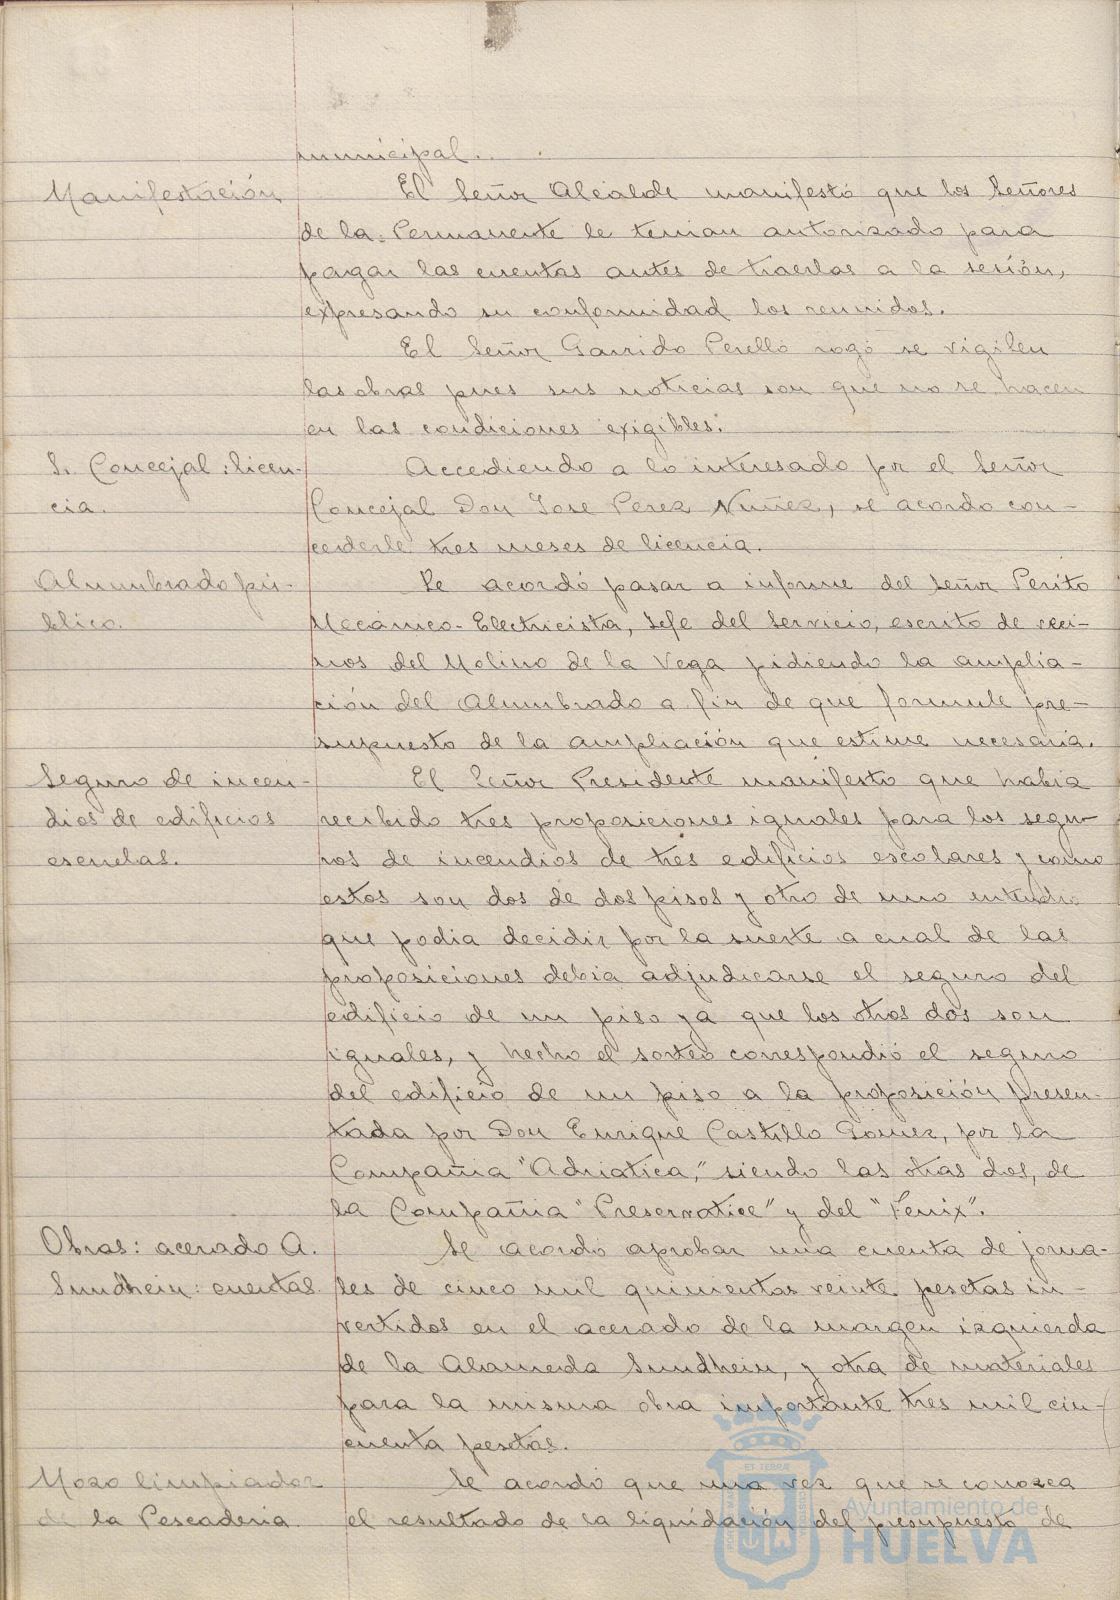 municipal.
Manifestación
El Señor Alcalde manifestó que los Señores
de la Permanente le tenian autorizado para
pagar las cuentas antes de traerlas a la sesión,
expresando su conformidad los reunidos.
El Señor Garrido Perelló rogó se vigilen
las obras pues sus noticias son que no se hacen
en las condiciones exigibles.
S. Concejal: licen-
cia.
Accediendo a lo interesado por el Señor
Concejal Don Jose Perez Nuñez, se acordo con-
cederle tres meses de licencia.
Alumbrado pú-
blico.
Se acordó pasar a informe del Señor Perito
Mecánico-Electricista, Jefe del Servicio, escrito de veci-
nos del Molino de la Vega pidiendo la amplia-
ción del Alumbrado a fin de que formule pre-
supuesto de la ampliación que estime necesaria.
Seguro de incen-
dios de edificios
escuelas.
El Señor Presidente manifesto que habia
recibido tres proposiciones iguales para los segu-
ros de incendios de tres edificios escolares y como
estos son dos de dos pisos y otro de uno entendia
que podia decidir por la suerte a cual de las
proposiciones debia adjudicarse el seguro del
edificio de un piso ya que los otros dos son
iguales, y hecho el sorteo correspondió el seguro
del edificio de un piso a la proposición presen-
tada por Don Enrique Castillo Gomez, por la
Compañia "Adriatica," siendo las otras dos, de
la Compañia "Preservatice" y del "Fenix".
Obras: acerado A.
Sundhein: cuentas.
Se acordó aprobar una cuenta de jorna-
les de cinco mil quinientas veinte pesetas in-
vertidos en el acerado de la margen izquierda
de la Alameda Sundhein, y otra de materiales
para la misma obra importante tres mil cin-
cuenta pesetas.
Mozo limpiador
de la Pescaderia.
Se acordó que una vez que se conozca
el resultado de la liquidación del presupuesto de
Ayuntamiento de
HUELVA